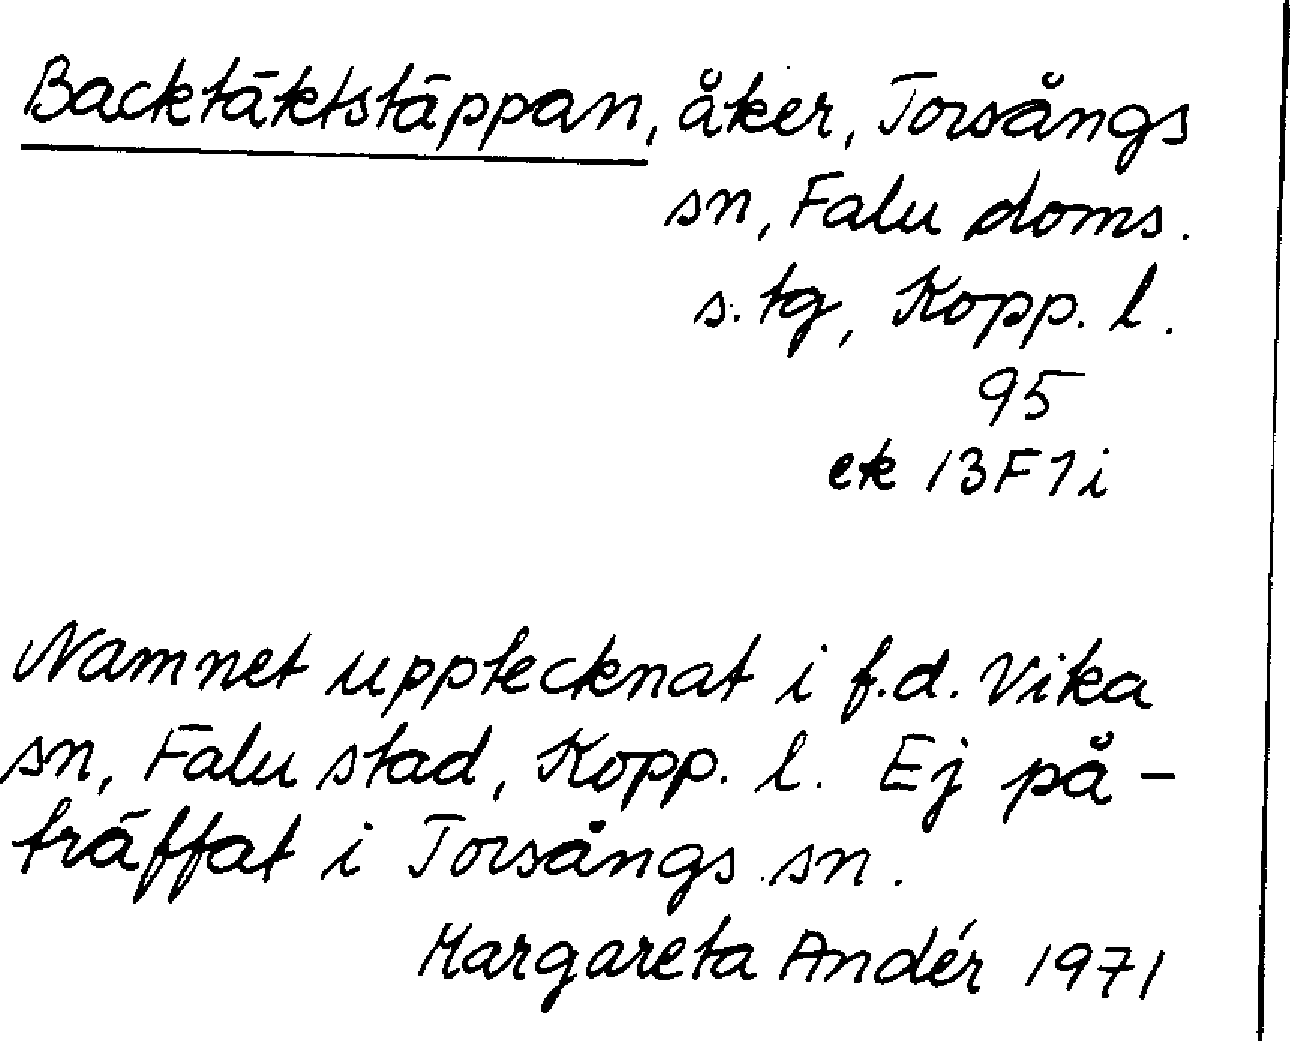 Backtäktstäppan, åker, Torsångs
sn, Falu doms.
s. tg, Kopp. l.
95
ek 13F1i
Namnet upptecknat i f.d. Vika
sn, Falu stad, Kopp. l. Ej på-
träffat i Torsångs sn.
Margareta Andér 1971